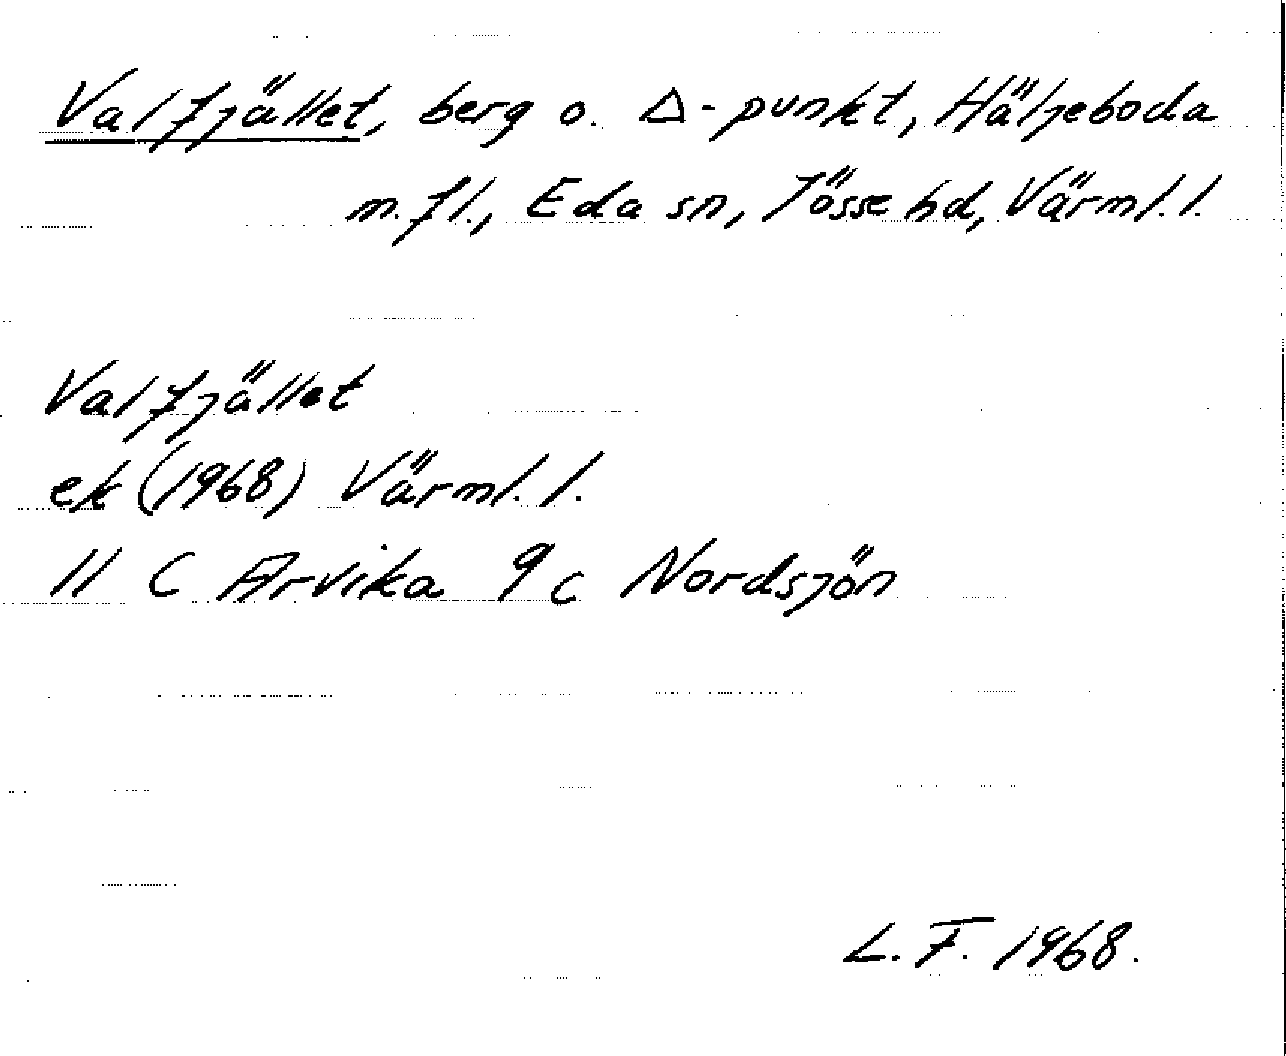 Valfjället, berg o. △-punkt, Häljeboda
m.fl., Eda sn, Jösse hd, Värml. l.
Valfjället
ek (1968) Värml. l.
11 C Arvika 9c Nordsjön
L. F. 1968.